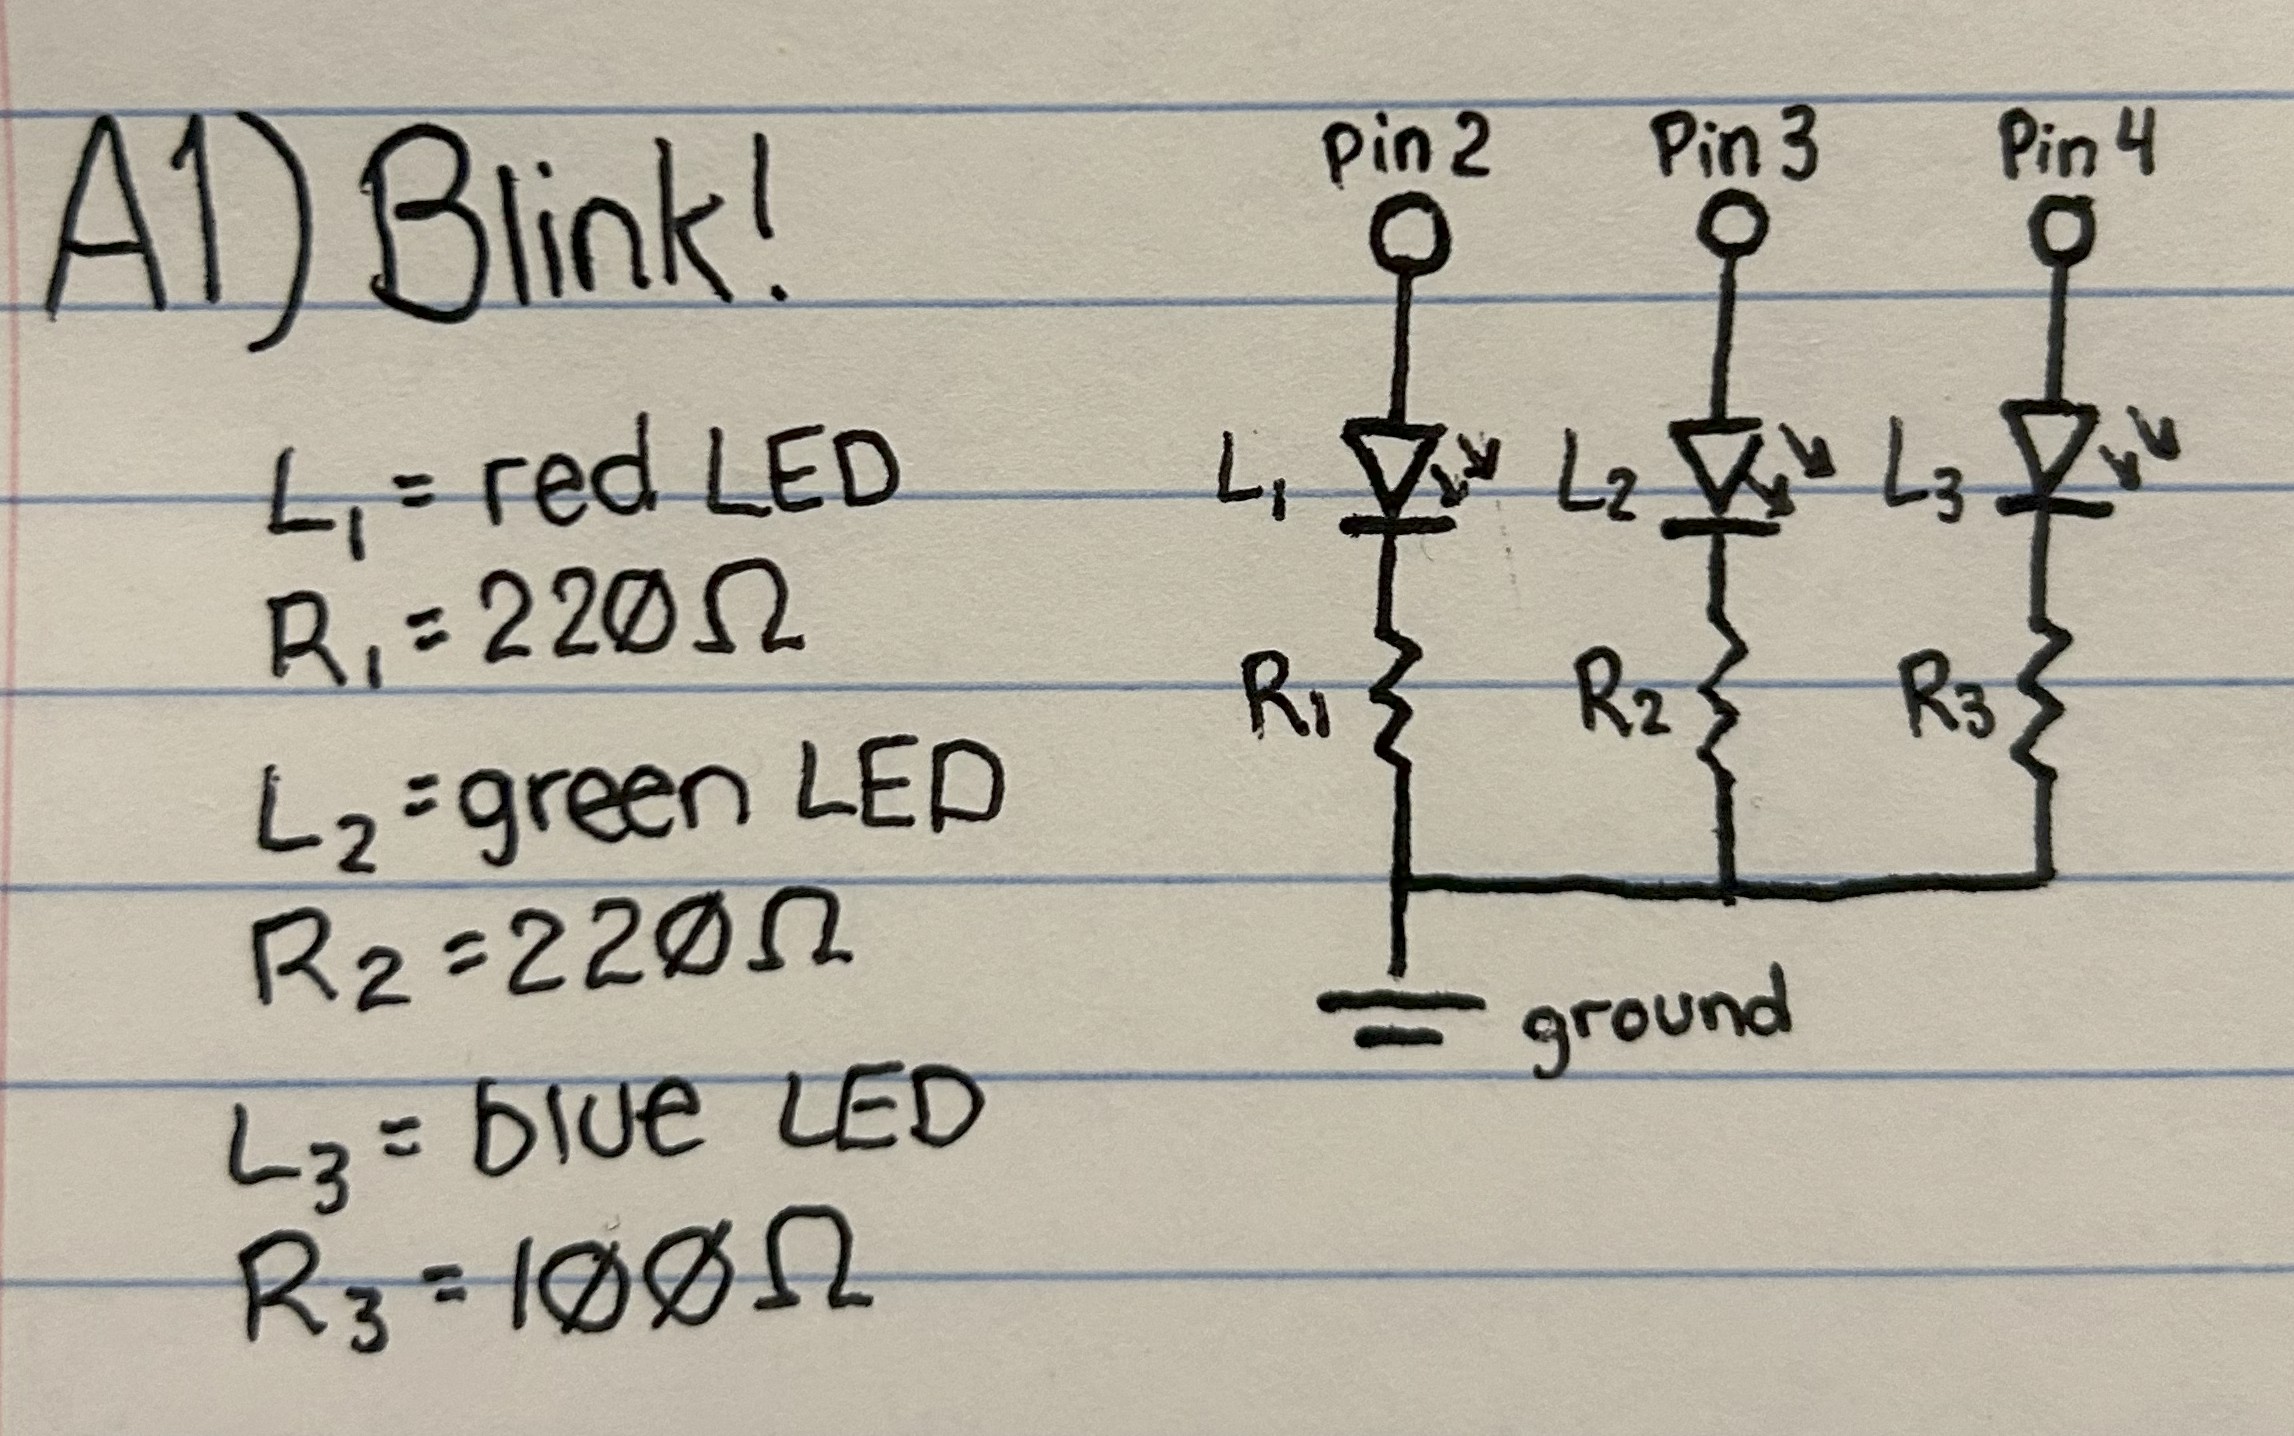 A1) Blink!
L₁ = red LED
R₁ = 220Ω
L₂ = green LED
R₂ = 220Ω
L₃ = blue LED
R₃ = 100Ω
pin 2 Pin 3 Pin 4
L₁ L₂ L₃
R₁ R₂ R₃
ground